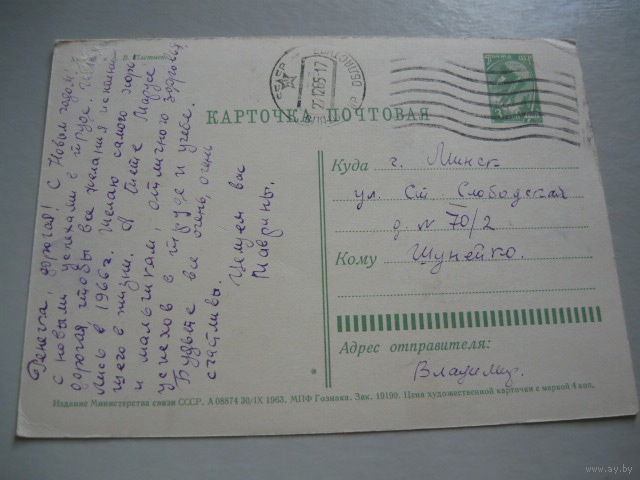 КАРТОЧКА ПОЧТОВАЯ
27 12 65-17
Куда г. Минск
ул. Ст Слободская
д N 70/2
Кому Шунейко.
Адрес отправителя:
Владимир.
дорогая! С Новым годом,
с новыми успехами в труде.
дорогая чтобы все желания исполни
лись в 1966 г. Желаю самого хоро
шего в жизни. А Пете Марусе
и мальчикам, отличного здоровья,
успехов в труде и учебе.
Будьте все очень, очень
счастливы.
Целуем вас
Маврины.
Издание Министерства связи СССР. А 08874 30/IX 1963. МПФ Гознака. Зак. 19190. Цена художественной карточки с маркой 4 коп.
www.ay.by